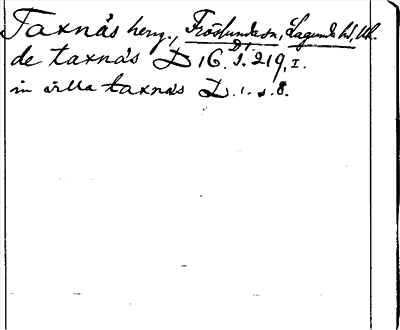 Taxnäs hemj., Fröslunda sn, Lagunda hd, Upl.
de taxnäs D 16. D1. S. 219, I.
in villa taxnäs D. 1. s. 8.